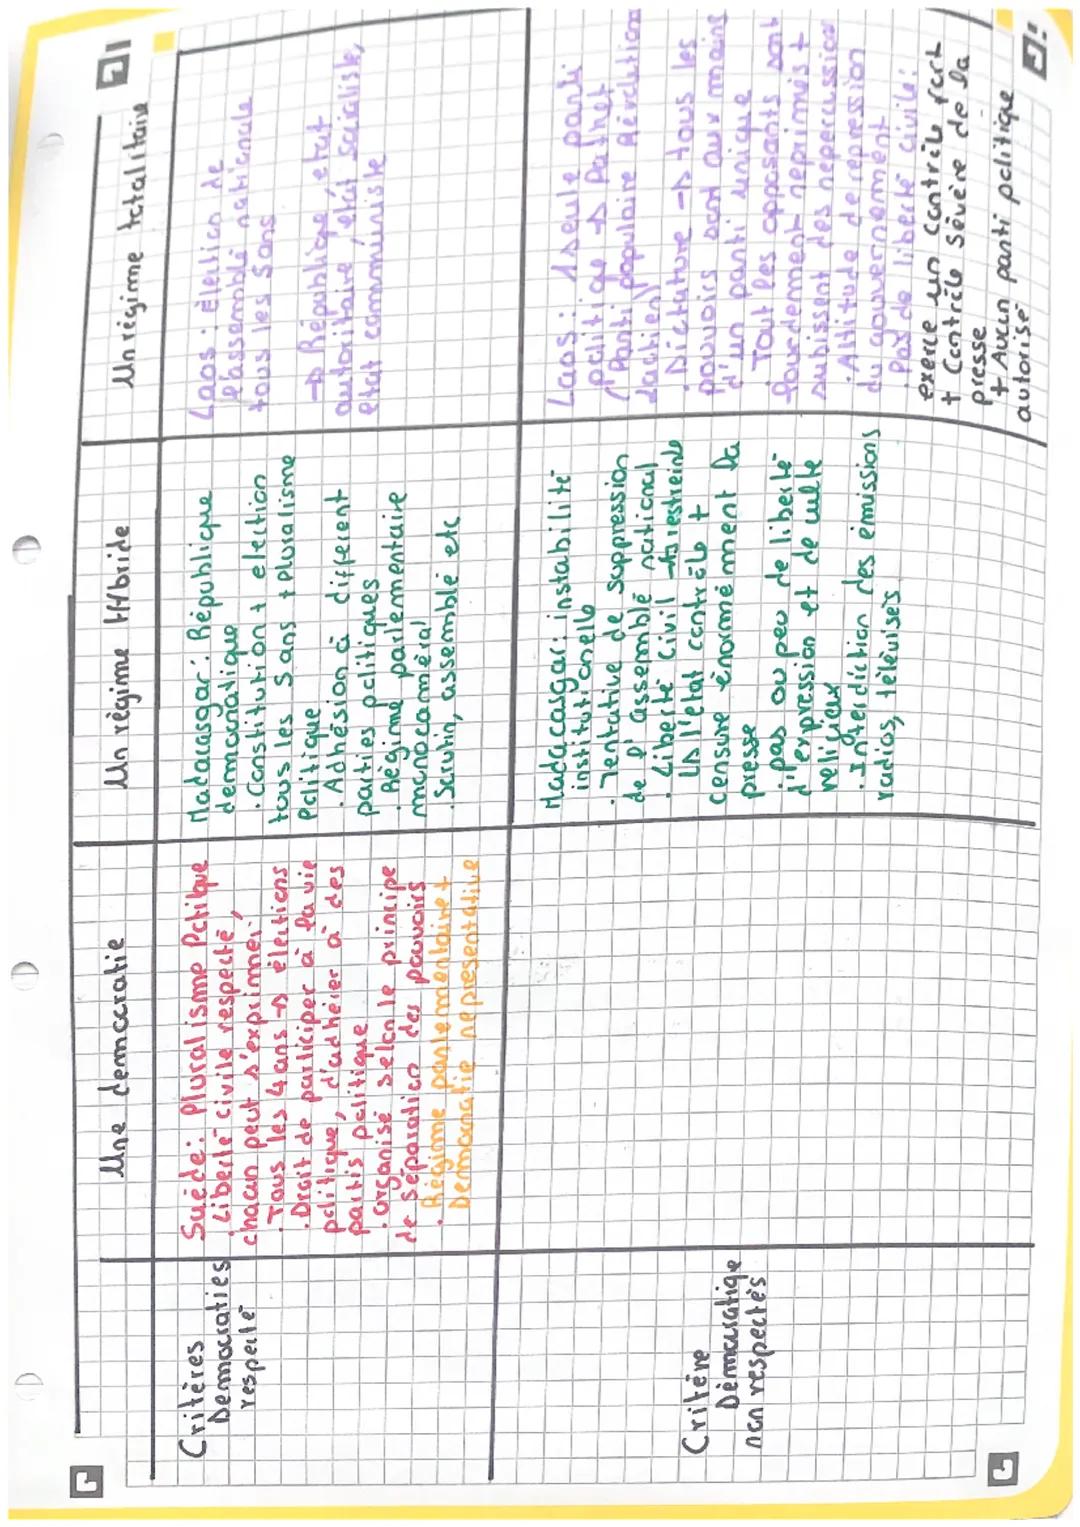 Une democratie
Un régime HYbride
Un régime totalitaire
Critères
Democraties
respecté
Suède: Pluralisme Politique
· Liberté civile respecté,
chacun peut s'exprimer,
· Tous les 4ans → élections
· Droit de participer à la vie
politique, d'adhérer à des
partis politique
· organisé selon le principe
de séparation des pouvoirs
· Régime parlementaire +
Democratie representative
Madacasgar: République
democratique
· Constitution + élection
tous les 5 ans + pluralisme
Politique
· Adhésion à différent
parties politiques
· Régime parlementaire
monocaméral
· Scrutin, assemblé etc
Laos: Élection de
l'assemblé nationale
tous les 5ans
→ République, état
autoritaire, état socialiste,
état communiste
Critère
Démocratique
non respectés
Madacasgar: instabilité
institutionelle
· Tentative de suppression
de l'assemblé national
· Liberté Civil → restreinte
L'état contrôle +
censure énormément la
presse
· pas ou peu de liberté
d'expression et de culte
religieux
· Interdiction des émissions
radios, télévisés
Laos: 1 seule parti
politique → Pathet
/Parti populaire Révolutionn
laotien/
· Dictature → tous les
pouvoirs sont aux mains
d'un parti unique
Tout les opposants sont
lourdemment reprimés +
subissent des repercussion
· Altitude de repression
du gouvernement
· Pas de liberté civile:
exerce un contrôle fort
+ Contrôle sévère de la
presse
+ Aucun parti politique
autorisé